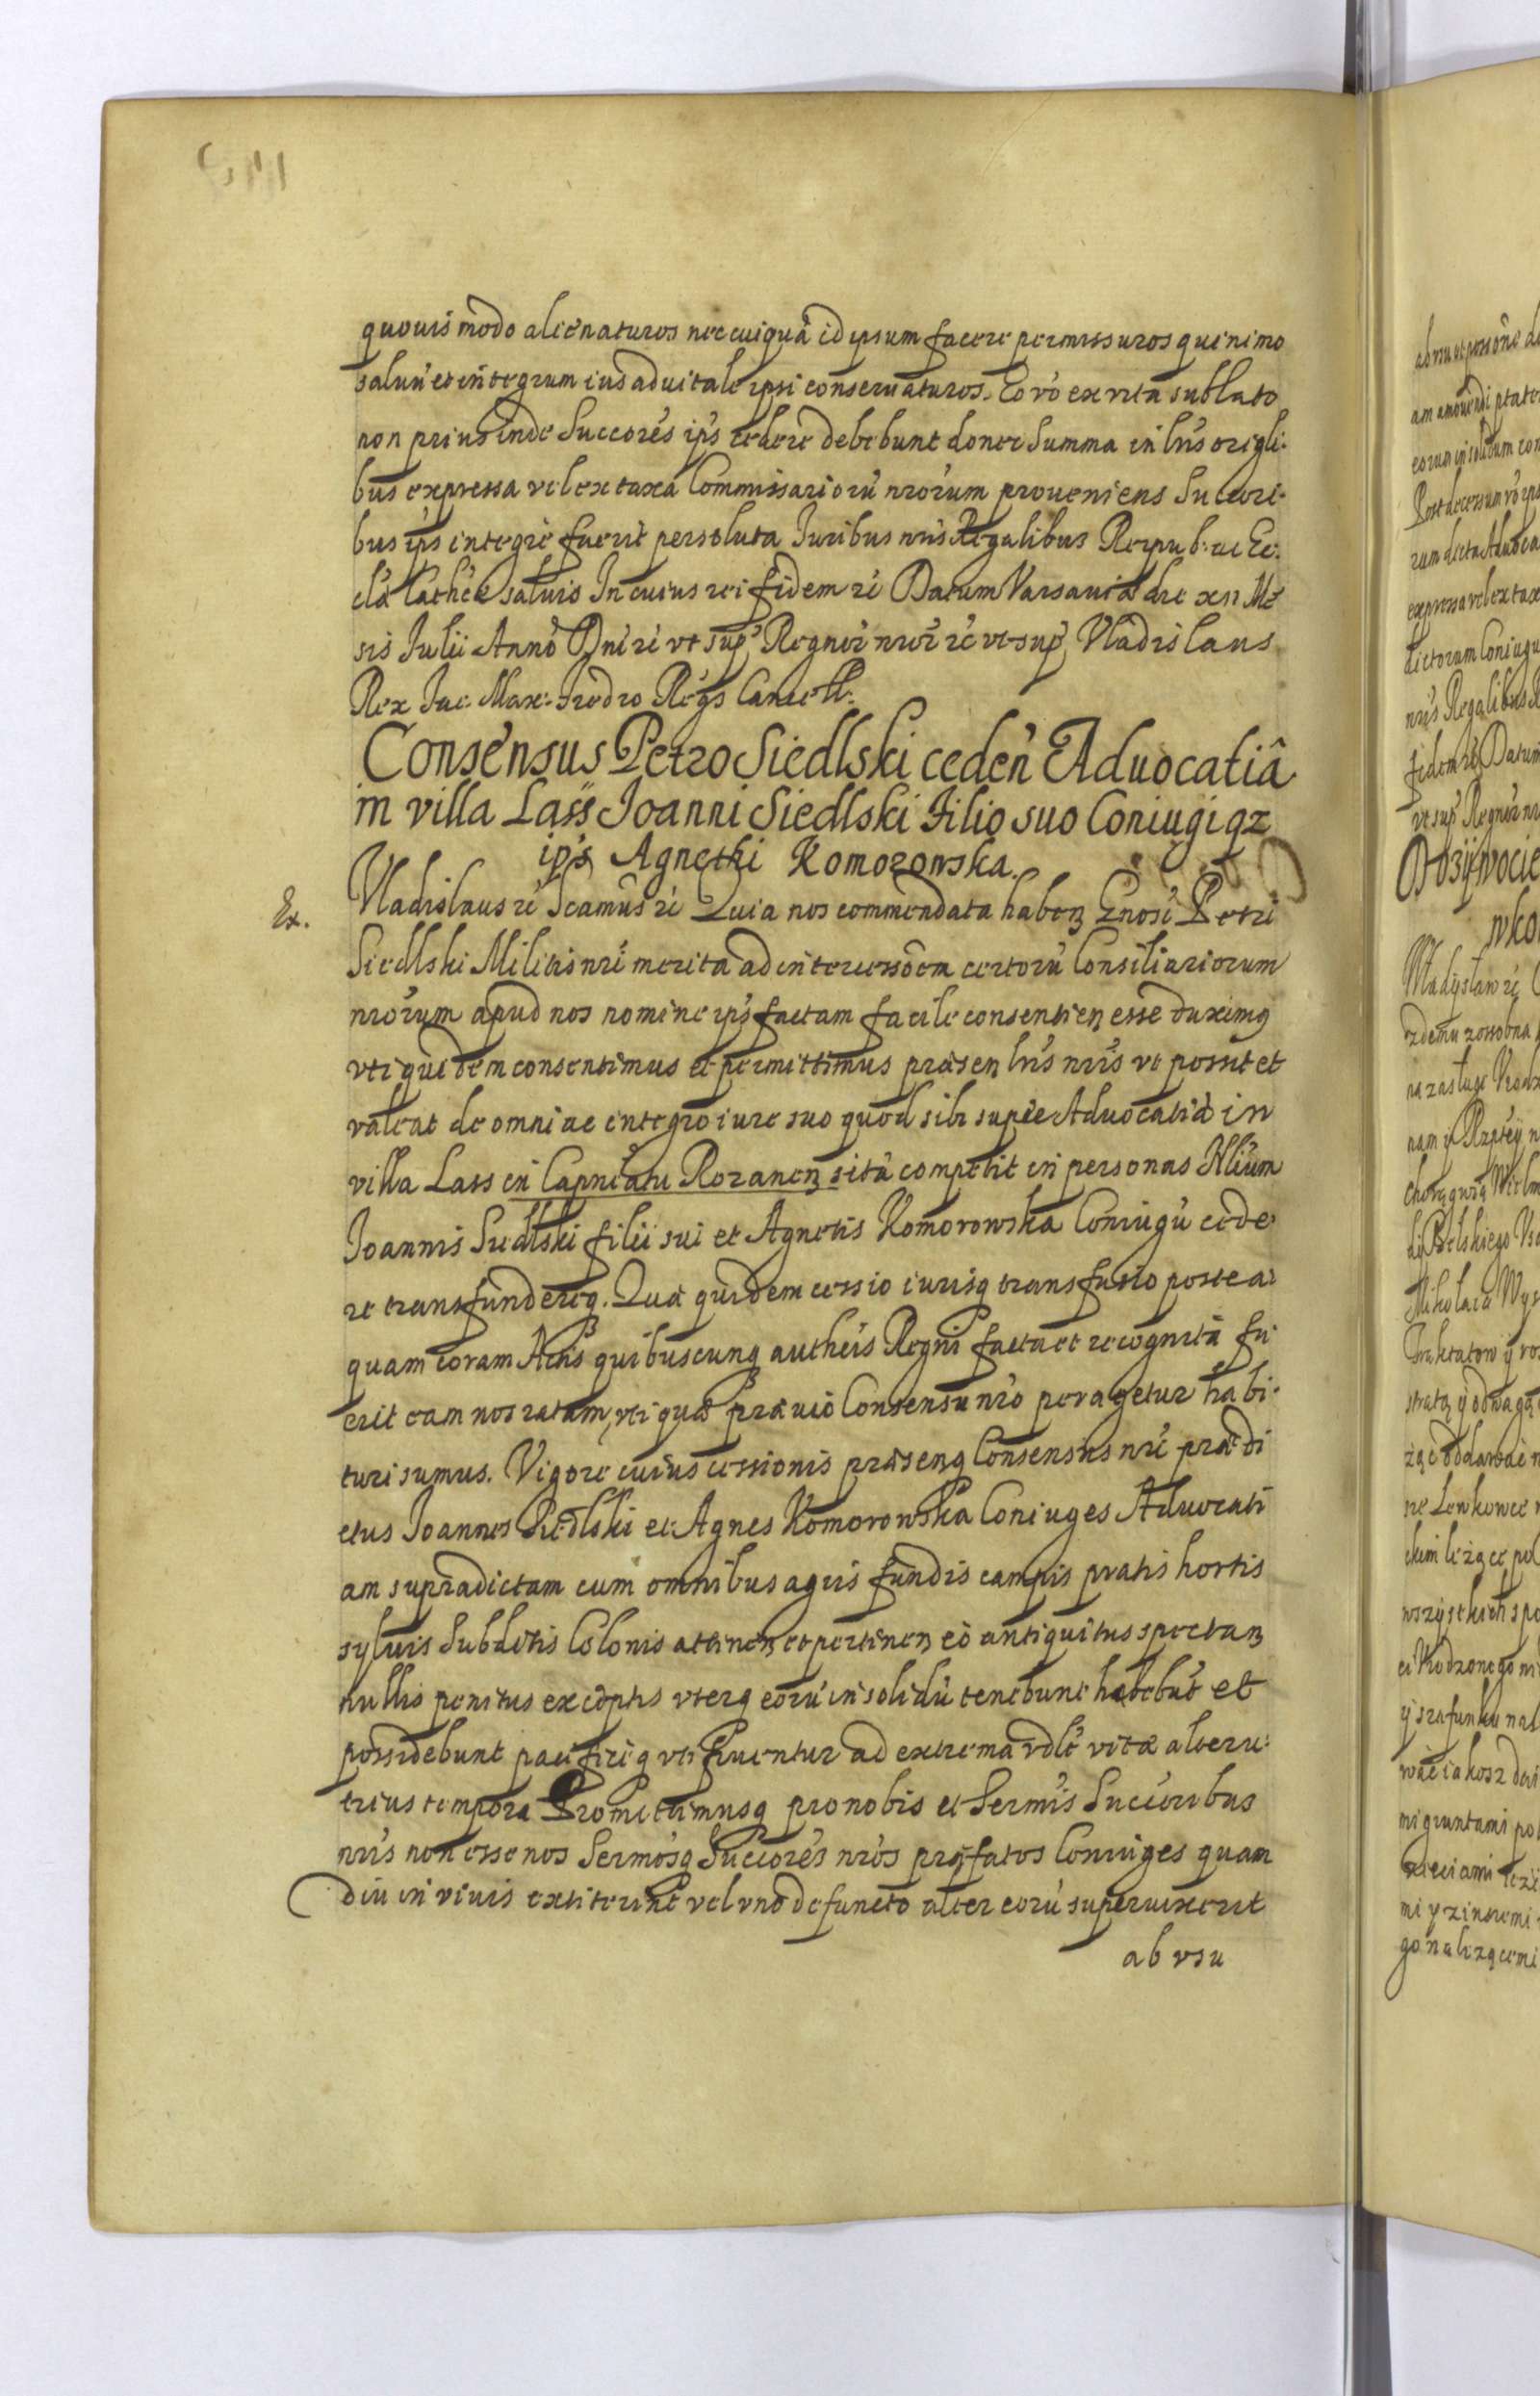 quouis modo alienaturos nec cuiquã id ipsum facere permissuros quinimo
saluũ et integrum ius aduitale ipsi conseruaturos. Eo vo ex vita sublato
non prius inde Succores ips cedere debebunt donec Summa in lris origli-
bus expressa vel ex taxa Commissariorũ nrorum proueniens Succori-
bus ips integre fuerit persoluta Iuribus nris Regalibus Reipub: ac Ec-
clã Cathcæ saluis In cuius rei fidem rẽ Datum Varsauiæ die XII Mẽ
sis Iulii Anno Dni rẽ vt sup Regnor nror rẽ vt sup Vladislaus
Rex Iac. Max: Fredro Regs Cancell:
Consensus Petro Siedlski ceden Aduocatiâ
in villa Lass Ioanni Siedlski Filio suo Coniugi qz
ips Agnethi Komorowska.
Ex.
Vladislaus rẽ Scamus rẽ Quia nos commendata haben Gnosi Petri
Siedlski Militis nri merita ad intercessõem certorũ Consiliariorum
nrorum apud nos nomine ips factam facile consentien esse duximq
vti quidem consentimus et permittimus præsen lris nris vt possit et
valeat de omni ac integro iure suo quod sibi supr Aduocatiã in
villa Lass in Capneatu Rozanen sitã competit in personas Nlium
Ioannis Siedlski filii sui et Agnetis Komorowska Coniugũ cede-
re transfundereq. Quæ quidem cessio iurisq transfusio postea-
quam coram Actis quibuscunq authcis Regni facta et recognita fu-
erit eam nos ratam, vti quæ præuio Consensu nro peragetur habi-
turi sumus. Vigore cuius cessionis præsenq Consensus nri prædi
ctus Ioannes Siedlski et Agnes Komorowska Coniuges Aduocati
am supradictam cum omnibus agris fundis campis pratis hortis
syluis Subditis Colonis attinen et pertinen eò antiquitus spectan
nullis penitus exceptis vterq eorũ in solidũ tenebunt habebũt et
possidebunt pacificeq vti fruentur ad extrema vdlt vitæ alteru-
trius tempora Promittimusq pro nobis et Sermis Succoribus
nris non esse nos Sermosq Succores nros præfatos Coniuges quam
diu in viuis extiterint vel vno defuncto alter eorũ superuixerit
ab vsu